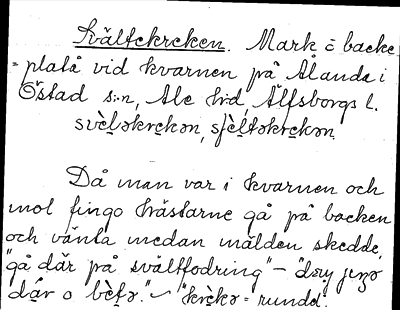 Svältekreken. Mark å backe-
=platå vid kvarnen på Ålanda i
Östad s:n, Ale hd, Älfsborgs l.
svèḷəkrek̠ən, sfèltəkrek̠ən

Då man var i kvarnen och
mol fingo hästarne gå på backen
och vänta medan mälden skedde,
"gå där på svältfodring" —
där o
"krèkə = runda".